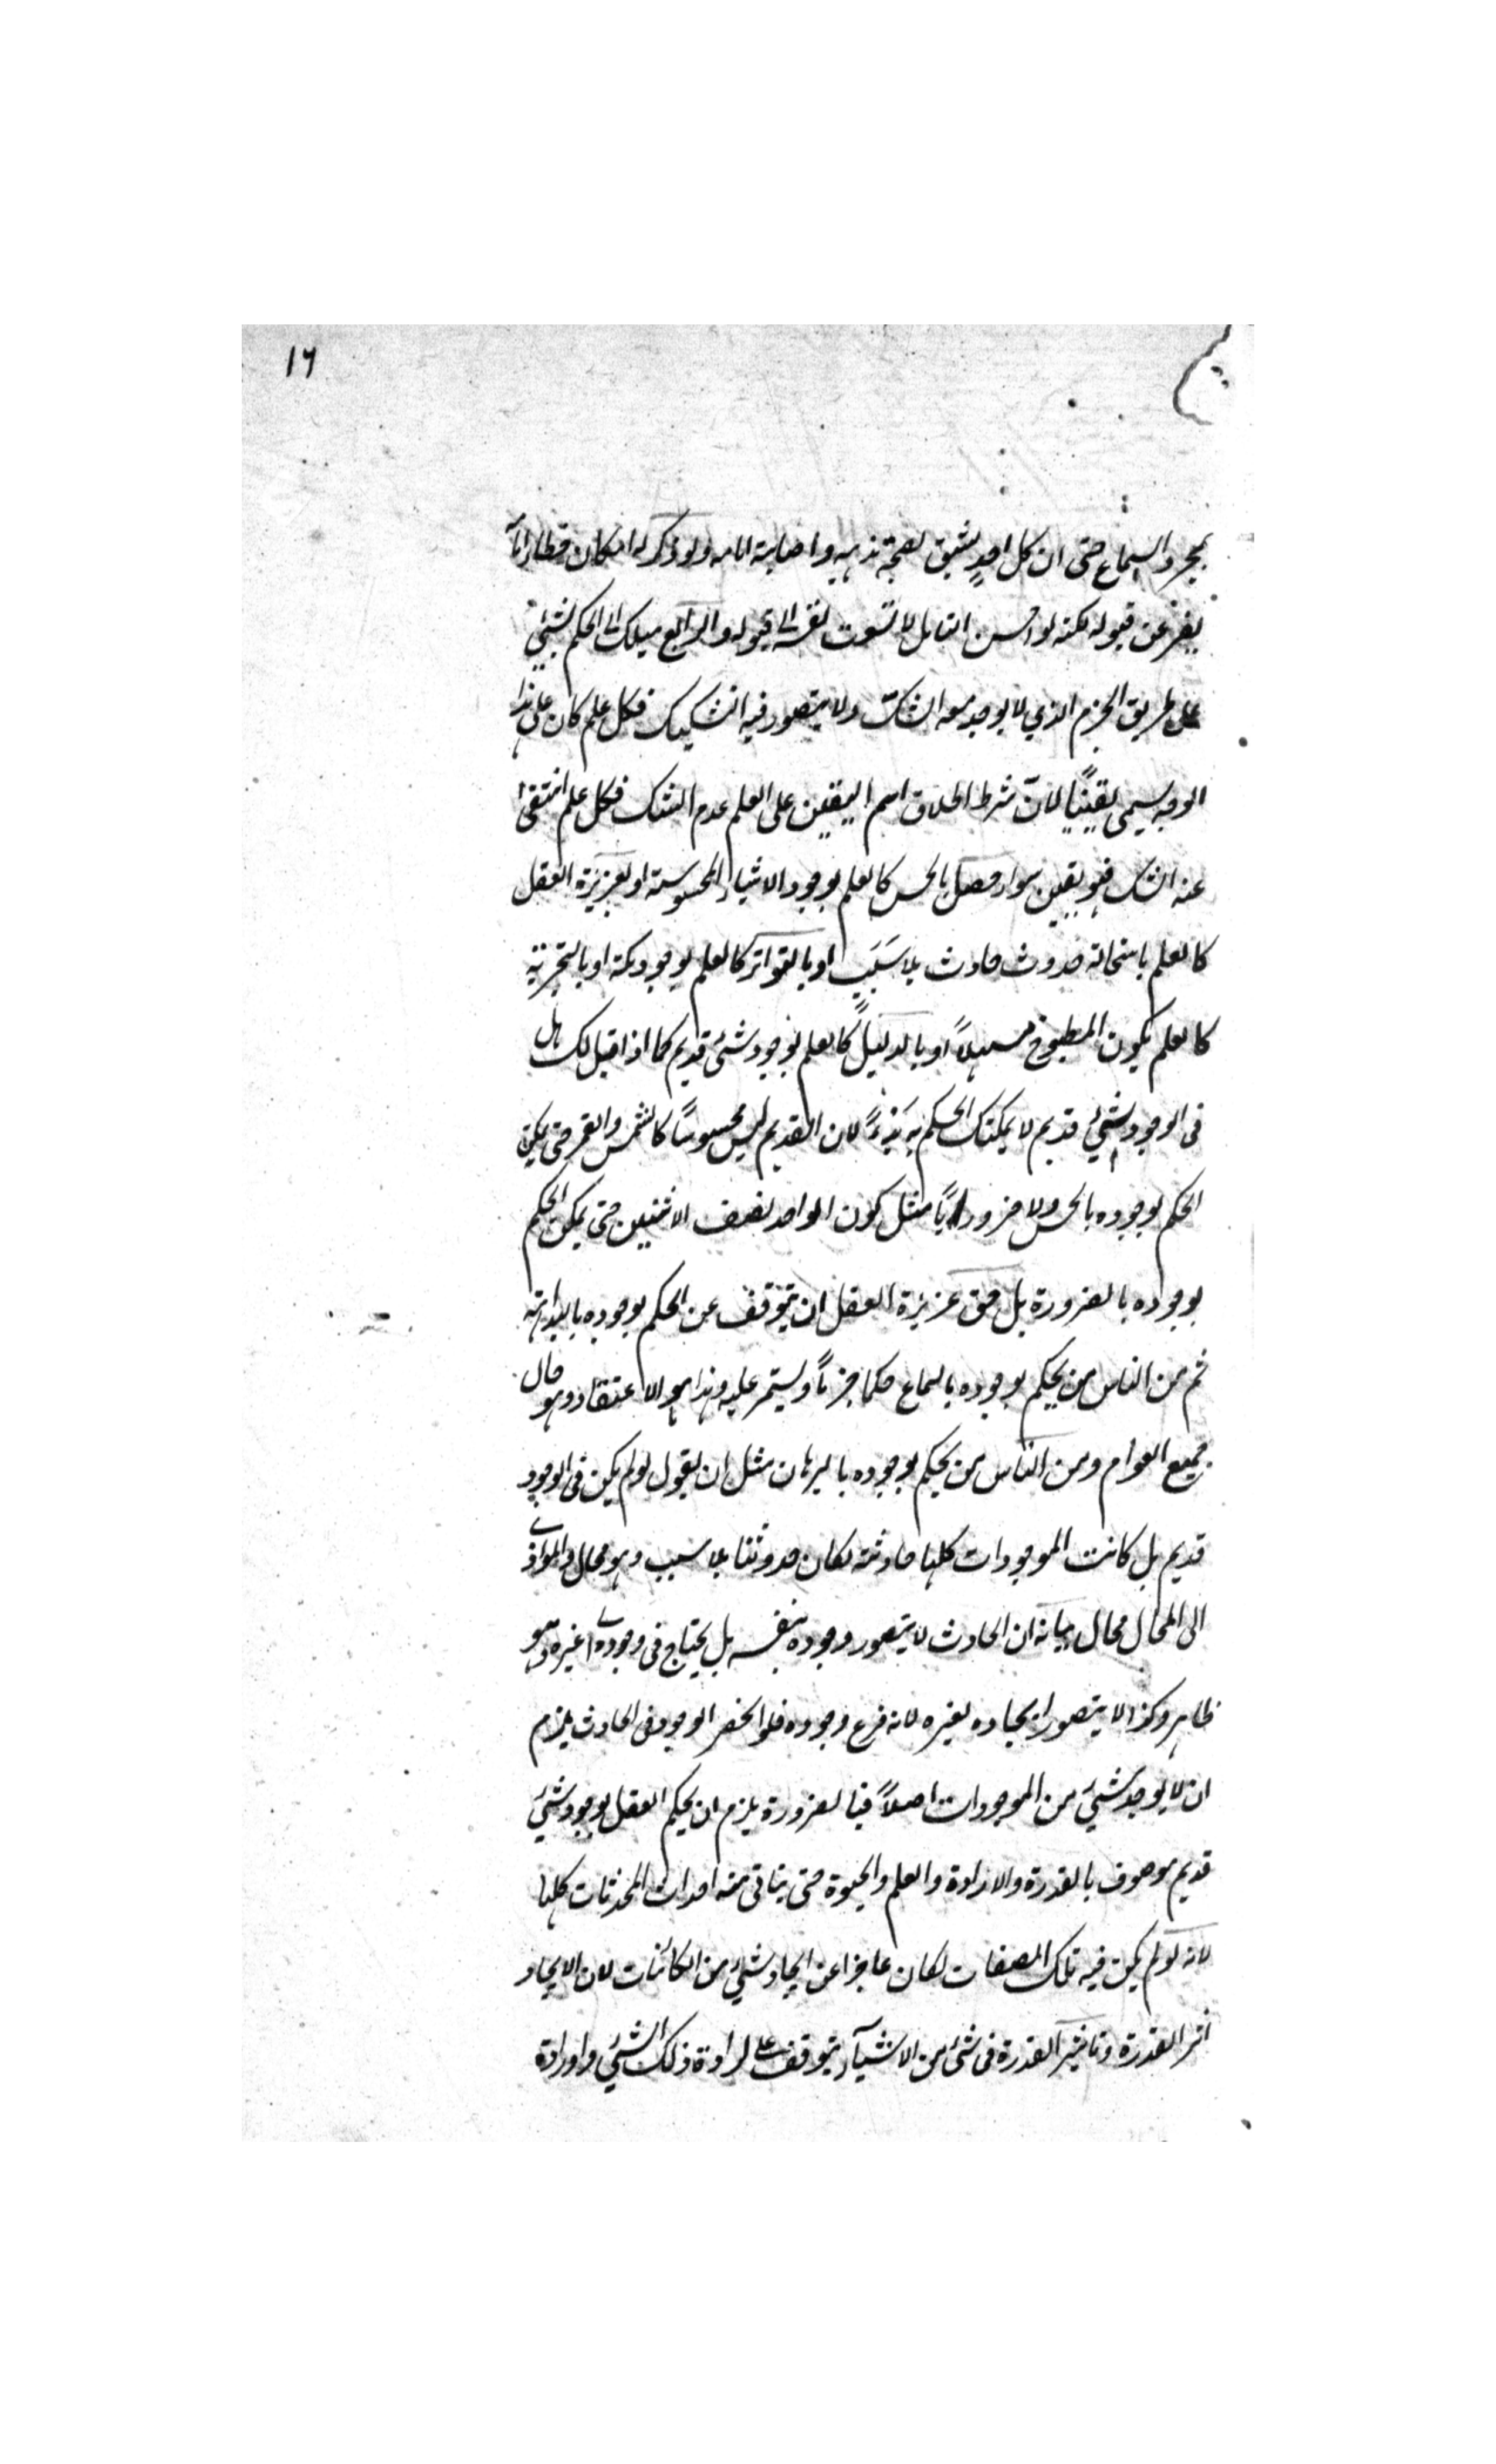 ١٦
بمجرد السماع حتى ان كل احدٍ يثيق لصحة مذهبه واصابة امامه ولو ذكر له امكان خطأ امامه
ينفر عن قبوله لكنه لو احسن التأمل لا تسوت نفسه الى قبوله والرابع ميلك الى الحكم لشئ
على طريق الجزم الذي لا يوجد معه الشك ولا يتصور فيه التشكيك فكل علم كان على هذا
الوجه يسمى يقينًا لان شرط اطلاق اسم اليقين على العلم عدم الشك فكل علم انتفى
عنه الشك فهو يقين سواء حصل بالحس كالعلم بوجود الاشياء المحسوسة او بغريزة العقل
كالعلم باستحالة حدوث حادث بلا سَبَبٍ او بالتواتر كالعلم بوجود مكة او بالتجربة
كالعلم بكون المطبوخ مسهلاً او بالدليل كالعلم بوجود شئ قديم كما اذا قيل لك هل
فى الوجود شئ قديم لا يمكنك الحكم به بديهةً لان القديم ليس محسوسًا كالشمس والقمر حتى يمكن
الحكم بوجوده بالحس ولا ضروريًا مثل كون الواحد نصف الاثنين حتى يمكن الحكم
بوجوده بالضرورة بل حق غريزة العقل ان يتوقف عن الحكم بوجوده بالبداهة
ثم من الناس من يحكم بوجوده بالسماع حكما جزمًا ويستمر عليه وهذا هو الاعتقاد وهو حال
جميع العوام ومن الناس من يحكم بوجوده بالبرهان مثل ان يقول لو لم يكن فى الوجود
قديم بل كانت الموجودات كلها حادثة لكان حدوثها بلا سبب وهو محال والمؤدى
الى المحال محال بيانه ان الحادث لا يتصور وجوده بنفسه بل يحتاج فى وجوده الى غيره وهو
ظاهر وكذا لا يتصور ايجاده لغيره لانه فرع وجوده فلو انحصر الوجود فى الحادث يلزم
ان لا يوجد شئ من الموجودات اصلاً فبالضرورة يلزم ان يحكم العقل بوجود شئ
قديم موصوف بالقدرة والارادة والعلم والحيوة حتى يتاتى منه احداث المحدثات كلها
لانه لو لم يكن فيه تلك الصفات لكان عاجزا عن ايجاد شئ من الكائنات لان الايجاد
اثر القدرة وتاثير القدرة فى شئ من الاشيآء يتوقف على ارادة ذلك الشئ وارادة